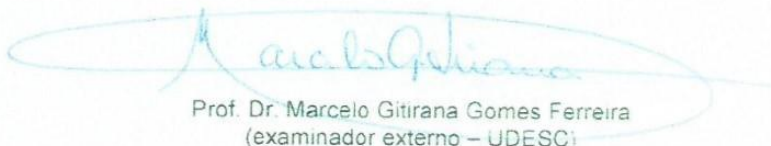 Marcelo Gitirana
Prof. Dr. Marcelo Gitirana Gomes Ferreira
(examinador externo – UDESC)